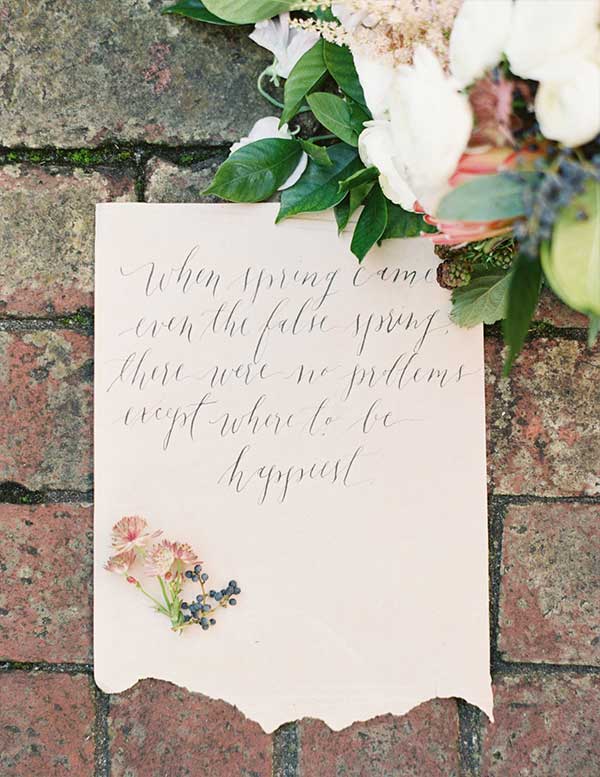 When spring came
even the false spring,
there were no problems
except where to be
happiest